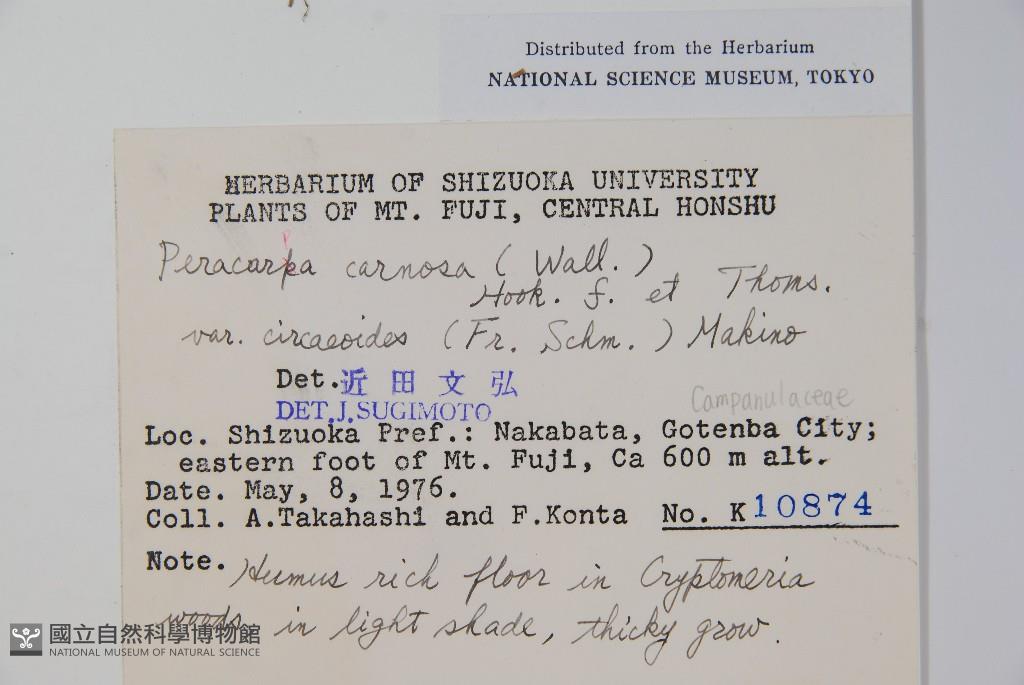 Distributed from the Herbarium
NATIONAL SCIENCE MUSEUM, TOKYO
HERBARIUM OF SHIZUOKA UNIVERSITY
PLANTS OF MT. FUJI, CENTRAL HONSHU
Peracarpa carnosa (Wall.)
Hook. f. et Thoms.
var. circaeoides (Fr. Schm.) Makino
Det. 近田文弘
DET. J. SUGIMOTO
Campanulaceae
Loc. Shizuoka Pref.: Nakabata, Gotenba City;
eastern foot of Mt. Fuji, Ca 600 m alt.
Date. May, 8, 1976.
Coll. A.Takahashi and F.Konta No. K10874
Note. Humus rich floor in Cryptomeria
woods in light shade, thicky grow.
國立自然科學博物館
NATIONAL MUSEUM OF NATURAL SCIENCE